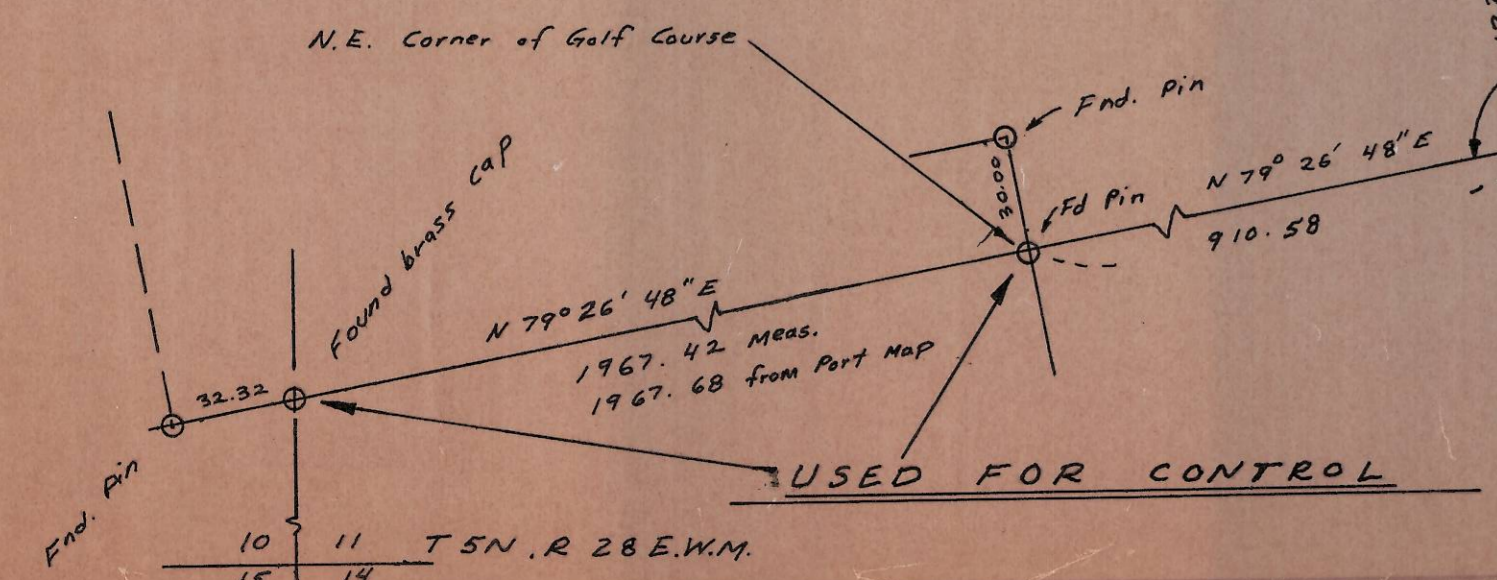 N.E. Corner of Golf Course
Fnd. Pin
30.00
Fd Pin
N 79° 26' 48" E
910.58
Found brass cap
N 79° 26' 48" E
1967.42 Meas.
1967.68 from Port Map
32.32
Fnd. Pin
USED FOR CONTROL
10 11 T 5N. R 28 E.W.M.
15 14